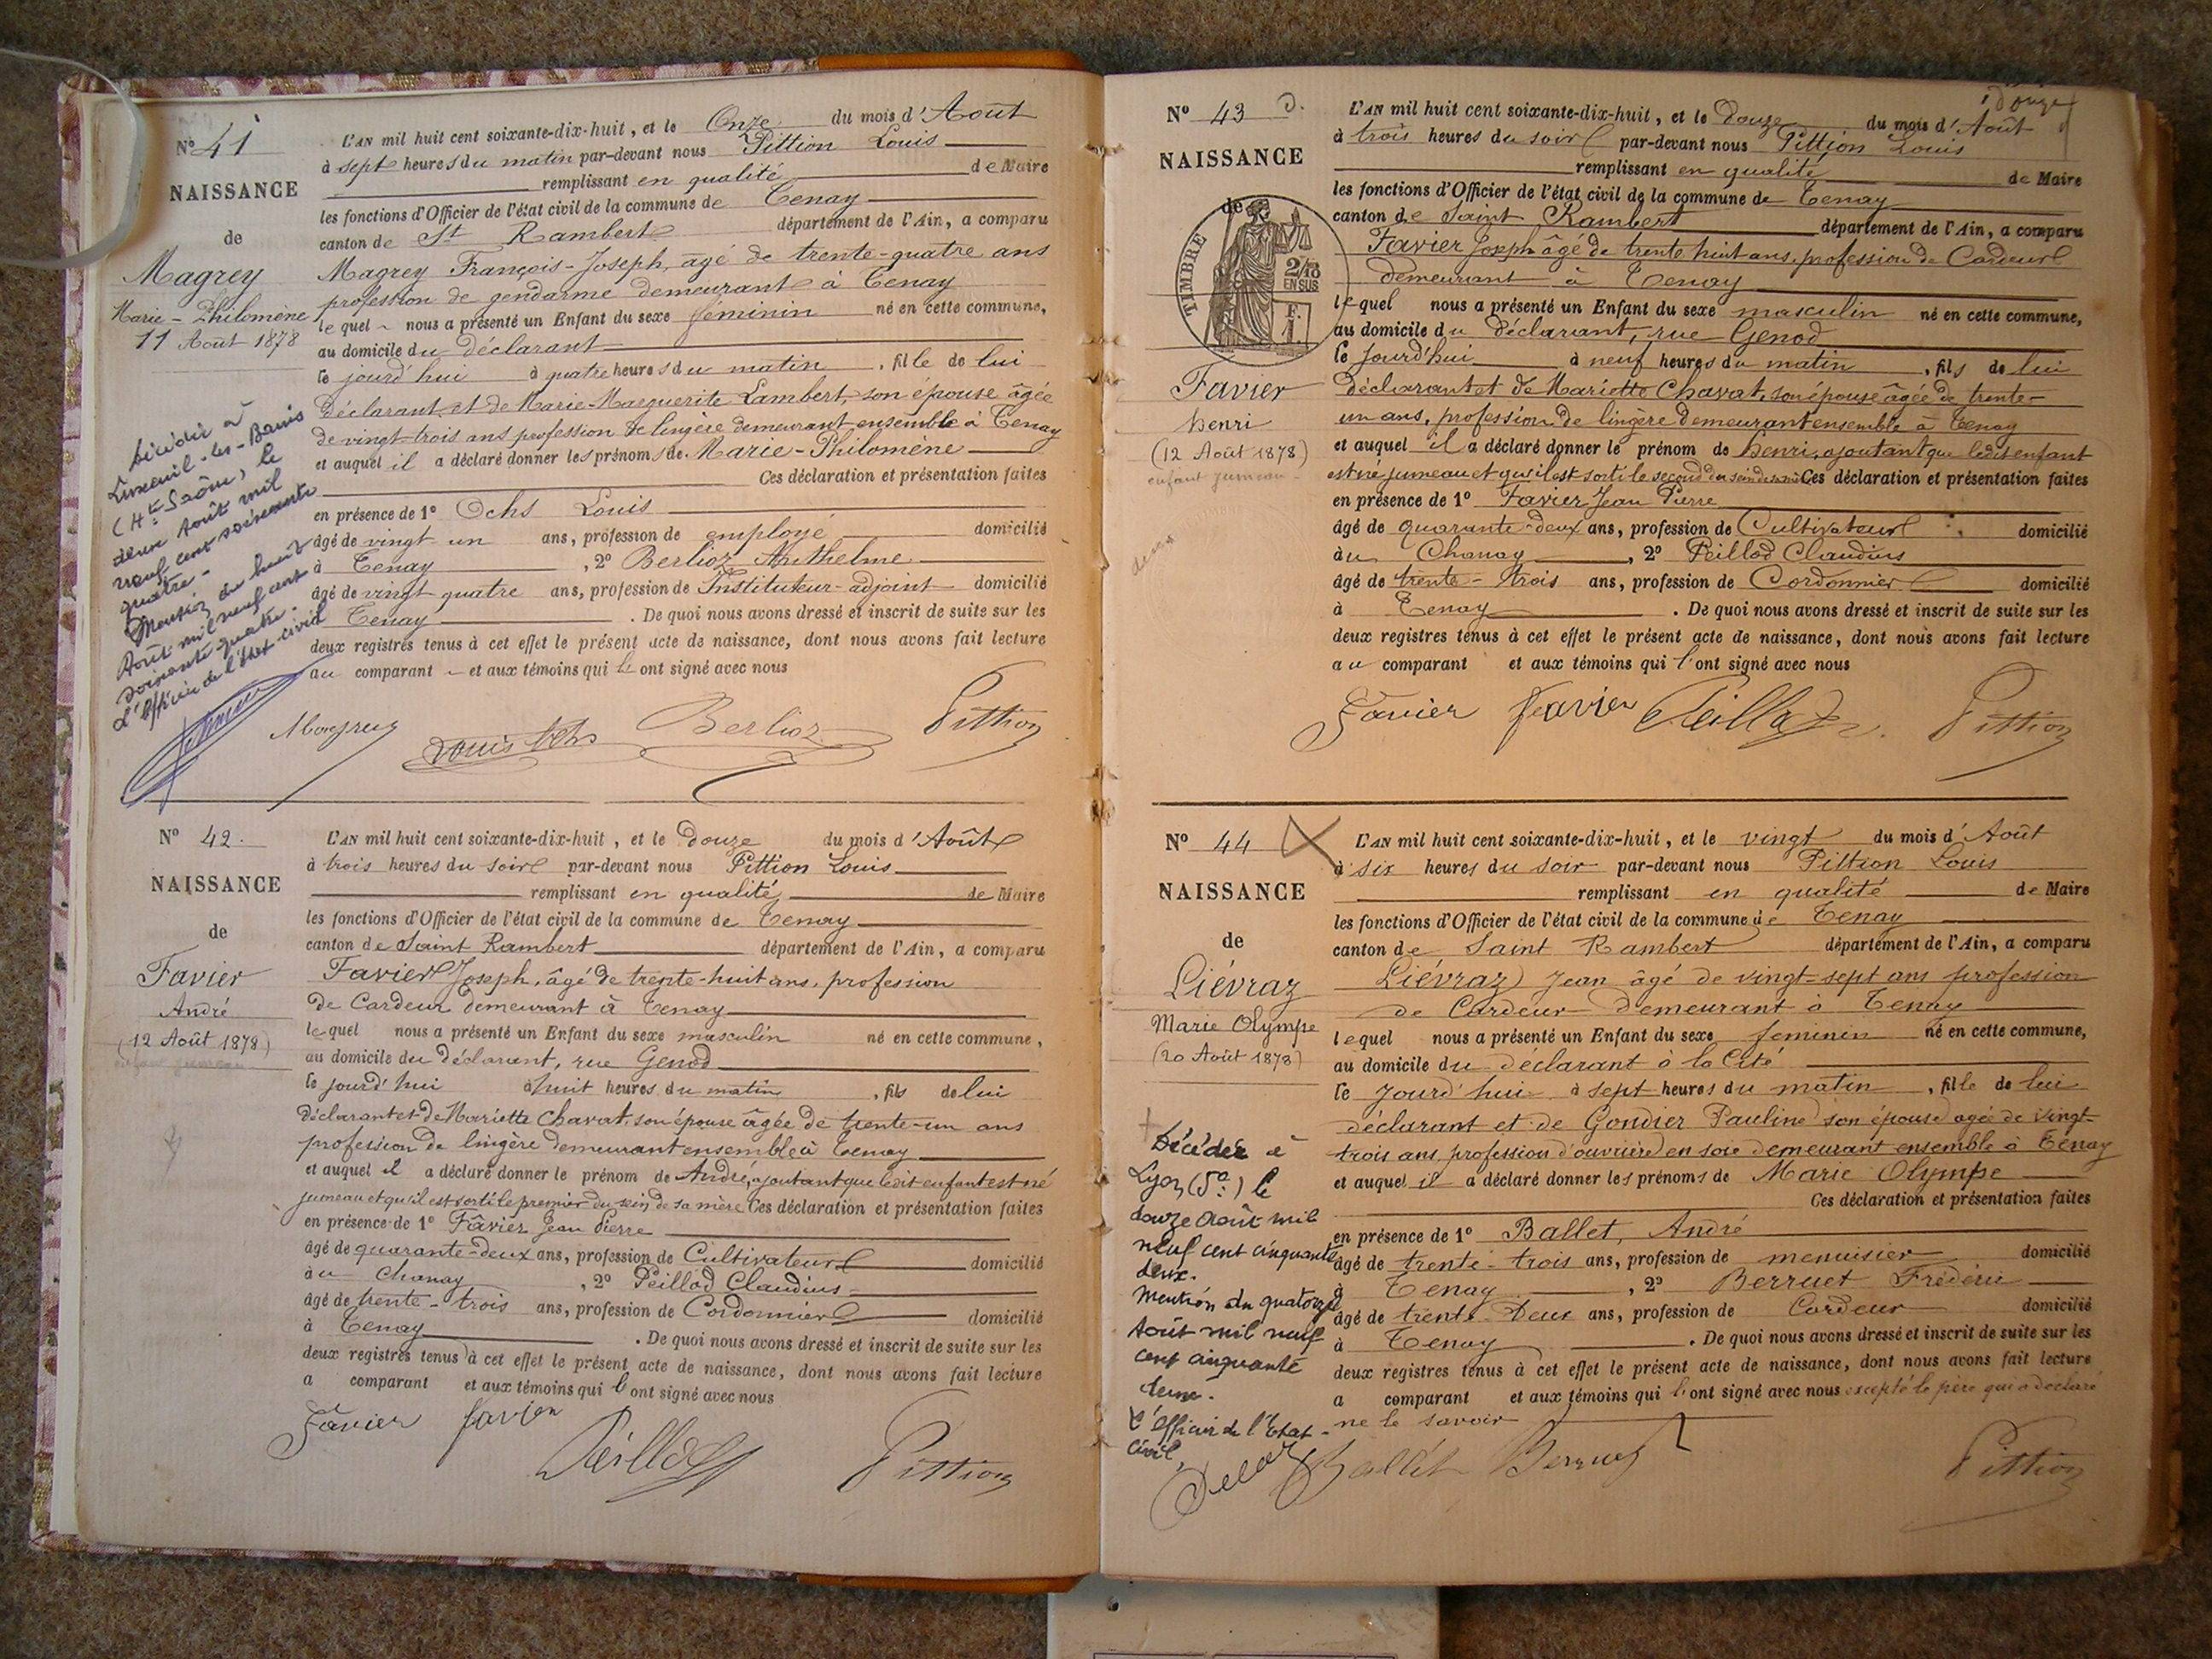 N° 41
NAISSANCE
de
Magrey
Marie-Philomène
11 Août 1878
Décédée à
Luxeuil-les-Bains
(Hte Saône) le
deux Août mil
neuf cent soixante
quatre.
Mention du huit
Août mil neuf cent
soixante-quatre.
L'Officier de l'état-civil
L'AN mil huit cent soixante-dix-huit, et le Onze du mois d'Août
à sept heures du matin par-devant nous Pittion Louis
remplissant en qualité de Maire
les fonctions d'Officier de l'état civil de la commune de Tenay
canton de St Rambert département de l'Ain, a comparu
Magrey François-Joseph, âgé de trente-quatre ans
profession de gendarme demeurant à Tenay
lequel nous a présenté un Enfant du sexe féminin né en cette commune,
au domicile du déclarant
le jourd'hui à quatre heures du matin, fille de lui
déclarant et de Marie-Marguerite Lambert, son épouse âgée
de vingt-trois ans profession de lingère demeurant ensemble à Tenay
et auquel il a déclaré donner les prénoms de Marie-Philomène
Ces déclaration et présentation faites
en présence de 1° Ochs Louis
âgé de vingt un ans, profession de employé domicilié
à Tenay, 2° Berlioz Anthelme
âgé de vingt quatre ans, profession de Instituteur-adjoint domicilié
à Tenay. De quoi nous avons dressé et inscrit de suite sur les
deux registres tenus à cet effet le présent acte de naissance, dont nous avons fait lecture
au comparant et aux témoins qui l'ont signé avec nous
Magrey Louis Ochs Berlioz Pittion
N° 42.
NAISSANCE
de
Favier
André
(12 Août 1878)
enfant jumeau
L'AN mil huit cent soixante-dix-huit, et le douze du mois d'Août
à trois heures du soir par-devant nous Pittion Louis
remplissant en qualité de Maire
les fonctions d'Officier de l'état civil de la commune de Tenay
canton de Saint Rambert département de l'Ain, a comparu
Favier Joseph, âgé de trente-huit ans, profession
de Cardeur demeurant à Tenay
lequel nous a présenté un Enfant du sexe masculin né en cette commune,
au domicile du déclarant, rue Genod
le jourd'hui à huit heures du matin, fils de lui
déclarant et de Mariette Chavat, son épouse âgée de trente-un ans
profession de lingère demeurant ensemble à Tenay
et auquel il a déclaré donner le prénom de André, ajoutant que ledit enfant est né
jumeau et qu'il est sorti le premier du sein de sa mère Ces déclaration et présentation faites
en présence de 1° Favier Jean Pierre
âgé de quarante-deux ans, profession de Cultivateur domicilié
au Chanay, 2° Peillod Claudius
âgé de trente-trois ans, profession de Cordonnier domicilié
à Tenay. De quoi nous avons dressé et inscrit de suite sur les
deux registres tenus à cet effet le présent acte de naissance, dont nous avons fait lecture
a comparant et aux témoins qui l'ont signé avec nous
Favier Favier Peillod Pittion
N° 43 D.
NAISSANCE
de
TIMBRE
2/10
EN SUS
F.
1.
Favier
Henri
(12 Août 1878)
enfant jumeau
douze
L'AN mil huit cent soixante-dix-huit, et le douze du mois d'Août
à trois heures du soir par-devant nous Pittion Louis
remplissant en qualité de Maire
les fonctions d'Officier de l'état civil de la commune de Tenay
canton de Saint Rambert département de l'Ain, a comparu
Favier Joseph âgé de trente huit ans, profession de Cardeur
demeurant à Tenay
lequel nous a présenté un Enfant du sexe masculin né en cette commune,
au domicile du déclarant, rue Genod
le jourd'hui à neuf heures du matin, fils de lui
déclarant et de Mariette Chavat, son épouse âgée de trente-
un ans, profession de lingère demeurant ensemble à Tenay
et auquel il a déclaré donner le prénom de Henri, ajoutant que ledit enfant
est né jumeau et qu'il est sorti le second du sein de sa mère Ces déclaration et présentation faites
en présence de 1° Favier Jean Pierre
âgé de quarante-deux ans, profession de Cultivateur domicilié
au Chanay, 2° Peillod Claudius
âgé de trente-trois ans, profession de Cordonnier domicilié
à Tenay. De quoi nous avons dressé et inscrit de suite sur les
deux registres tenus à cet effet le présent acte de naissance, dont nous avons fait lecture
au comparant et aux témoins qui l'ont signé avec nous
Favier Favier Peillod Pittion
N° 44
NAISSANCE
de
Liévraz
Marie Olympe
(20 Août 1878)
Décédée à
Lyon (5e) le
douze Août mil
neuf cent cinquante
deux.
Mention du quatorze
Août mil neuf
cent cinquante
deux.
L'Officier de l'Etat-
civil,
L'AN mil huit cent soixante-dix-huit, et le vingt du mois d'Août
à six heures du soir par-devant nous Pittion Louis
remplissant en qualité de Maire
les fonctions d'Officier de l'état civil de la commune de Tenay
canton de Saint Rambert département de l'Ain, a comparu
Liévraz Jean âgé de vingt-sept ans profession
de Cardeur demeurant à Tenay
lequel nous a présenté un Enfant du sexe feminin né en cette commune,
au domicile du déclarant à la Cité
le jourd'hui à sept heures du matin, fille de lui
déclarant et de Gondier Pauline son épouse agée de vingt-
trois ans, profession d'ouvrière en soie demeurant ensemble à Tenay
et auquel il a déclaré donner les prénoms de Marie Olympe
Ces déclaration et présentation faites
en présence de 1° Ballet, André
âgé de trente-trois ans, profession de menuisier domicilié
à Tenay, 2° Berruet Frédéric
âgé de trente-deux ans, profession de Cardeur domicilié
à Tenay. De quoi nous avons dressé et inscrit de suite sur les
deux registres tenus à cet effet le présent acte de naissance, dont nous avons fait lecture
a comparant et aux témoins qui l'ont signé avec nous excepté le père qui a déclaré
ne le savoir
Ballet Berruet Pittion